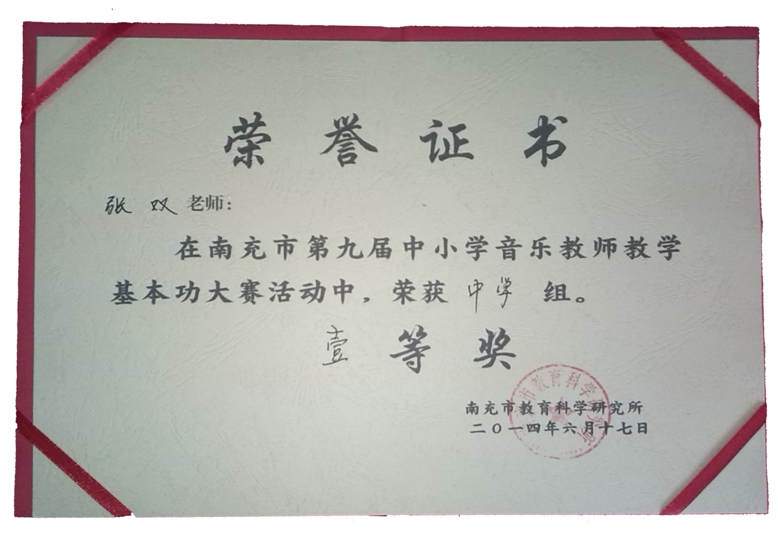 荣誉证书
张双老师：
在南充市第九届中小学音乐教师教学
基本功大赛活动中，荣获中学组。
壹等奖
南充市教育科学研究所
二〇一四年六月十七日